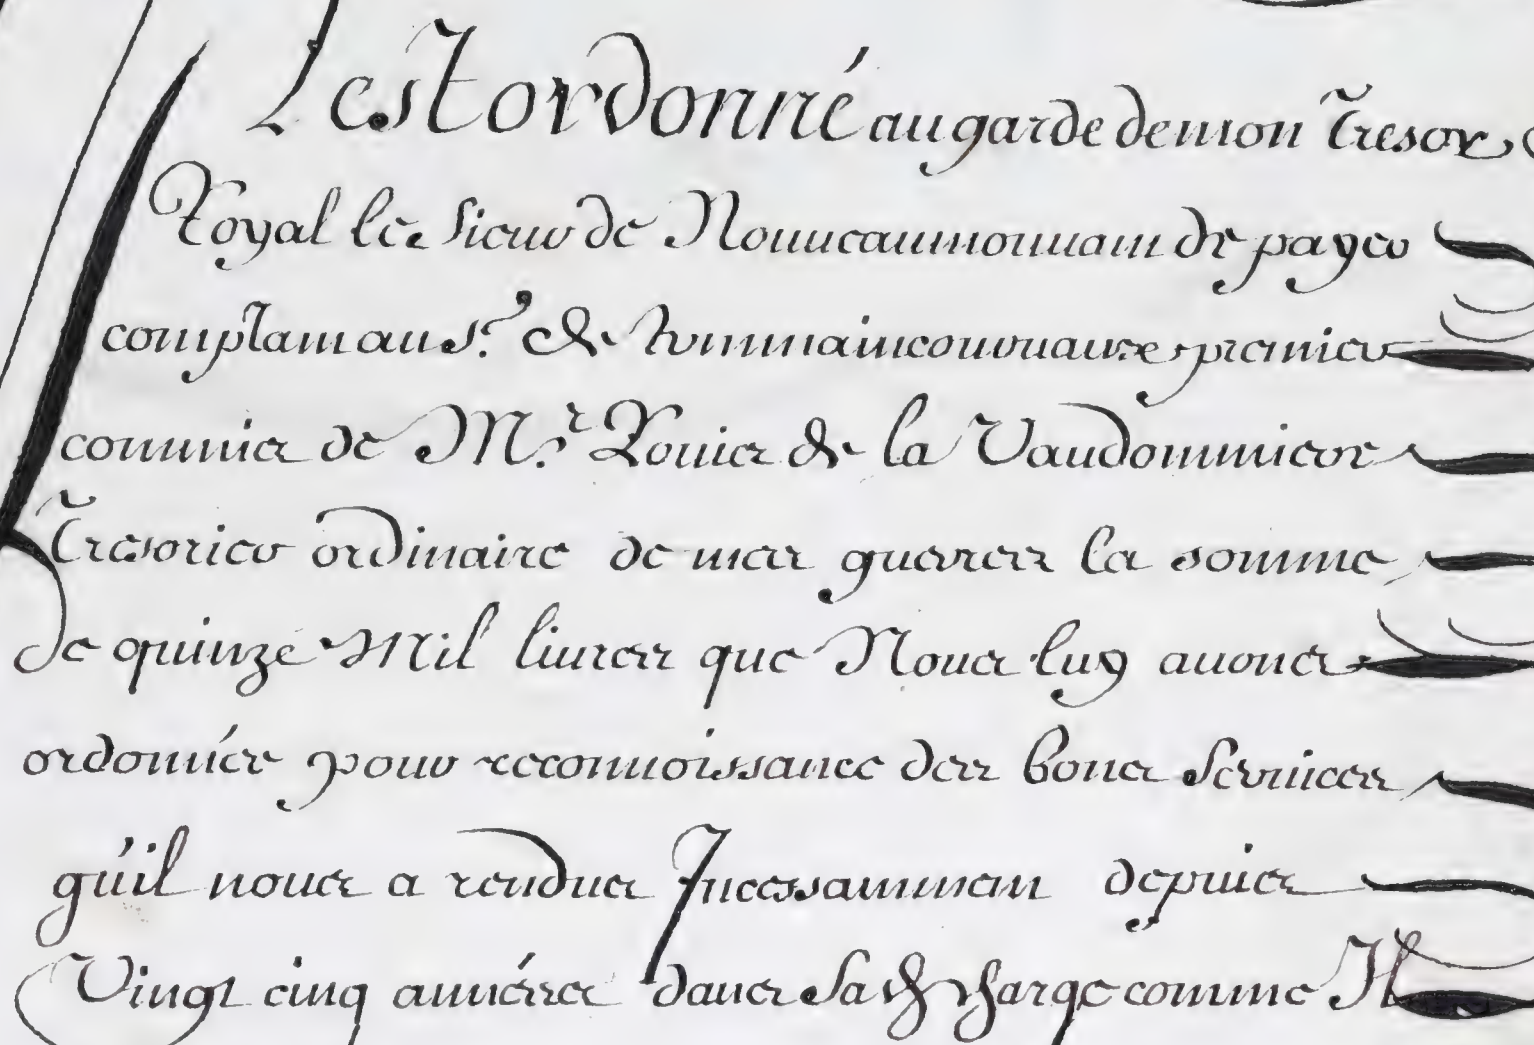 Il est ordonné au garde de mon Tresor
Royal le Sieur de de payer
comptam au S.r de premier
commis de M.r de la
Tresorier ordinaire de mes guerres la somme
de quinze Mil livres que Nous luy avons
ordonnée pour reconnoissance des bons Services
qu'il nous a rendus Incessammen depuis
Vingt cinq années dans sa charge comme Il